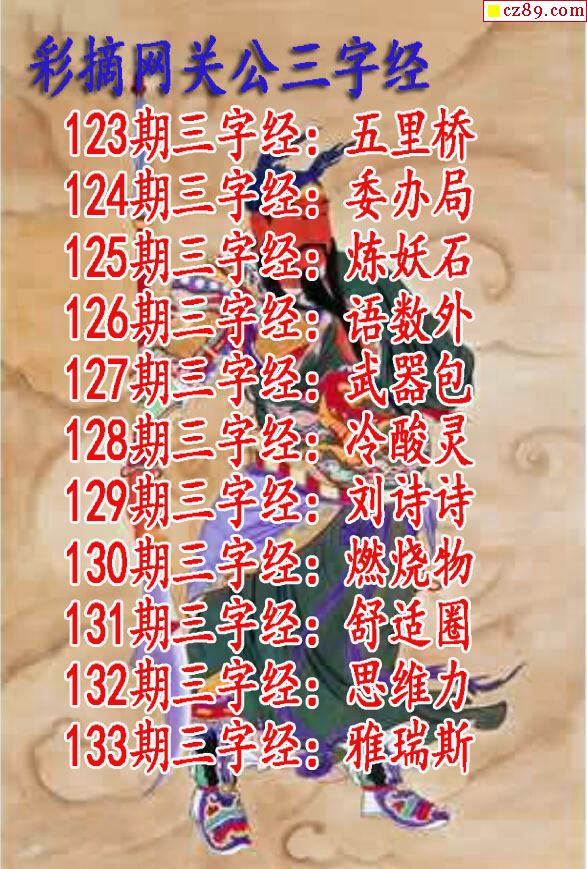 cz89.com
彩摘网关公三字经
123期三字经：五里桥
124期三字经：委办局
125期三字经：炼妖石
126期三字经：语数外
127期三字经：武器包
128期三字经：冷酸灵
129期三字经：刘诗诗
130期三字经：燃烧物
131期三字经：舒适圈
132期三字经：思维力
133期三字经：雅瑞斯